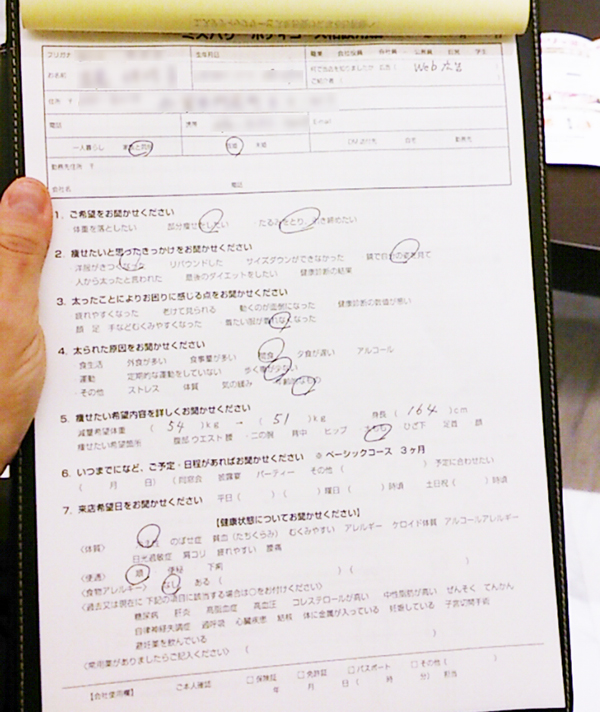 フリガナ 生年月日 職業 会社役員 会社員 公務員 自営 学生
お名前 何で当店を知りましたか 広告( Web )
ご紹介者(
住所 〒
電話 携帯 E-mail
一人暮らし 家族と同居 既婚 未婚 DM送付先 自宅 勤務先
勤務先住所 〒
会社名 電話
1. ご希望をお聞かせください
体重を落としたい 部分痩せがしたい たるみをとり、引き締めたい
2. 痩せたいと思ったきっかけをお聞かせください
洋服がきつくなった リバウンドした サイズダウンができなかった 鏡で自分の姿を見て
人から太ったと言われた 最後のダイエットをしたい 健康診断の結果
3. 太ったことによりお困りに感じる点をお聞かせください
疲れやすくなった 老けて見られる 動くのが面倒になった 健康診断の数値が悪い
顔 足 手などむくみやすくなった 着たい服が着れなくなった
4. 太られた原因をお聞かせください
・食生活 外食が多い 食事量が多い 間食 夕食が遅い アルコール
・運動 定期的な運動をしていない 歩く事が少ない
・その他 ストレス 体質 気の緩み 年齢的なもの
5. 痩せたい希望内容を詳しくお聞かせください
減量希望体重 ( 54 )kg → ( 51 )kg 身長 ( 164 )cm
痩せたい希望箇所 腹部 ウエスト 腰 ・二の腕 背中 ヒップ 太もも ・ひざ下 足首 顔
6. いつまでになど、ご予定・日程があればお聞かせください ベーシックコース 3ヶ月
( 月 日) ( 同窓会 披露宴 パーティー その他 ( ) 予定に合わせたい
7. 来店希望日をお聞かせください 平日( ) ( )曜日 ( )時頃 土日祝( )時頃
【健康状態についてお聞かせください】
〈体質〉 冷え性 のぼせ症 貧血(たちくらみ) むくみやすい アレルギー ケロイド体質 アルコールアレルギー
日光過敏症 肩コリ 疲れやすい 腰痛
〈便通〉 順 便秘 下痢
〈食物アレルギー〉 なし ある ( ) ( )
〈過去又は現在に 下記の項目に該当する場合は○をお付けください〉
糖尿病 肝炎 高脂血症 高血圧 コレステロールが高い 中性脂肪が高い ぜんそく てんかん
自律神経失調症 過呼吸 心臓疾患 結核 体に金属が入っている 妊娠している 子宮切開手術
避妊薬を飲んでいる
〈常用薬がありましたらご記入ください〉 ( )
【会社使用欄】 ご本人確認 □保険証 □免許証 □パスポート □その他( )
年 月 日( 時 分) 担当